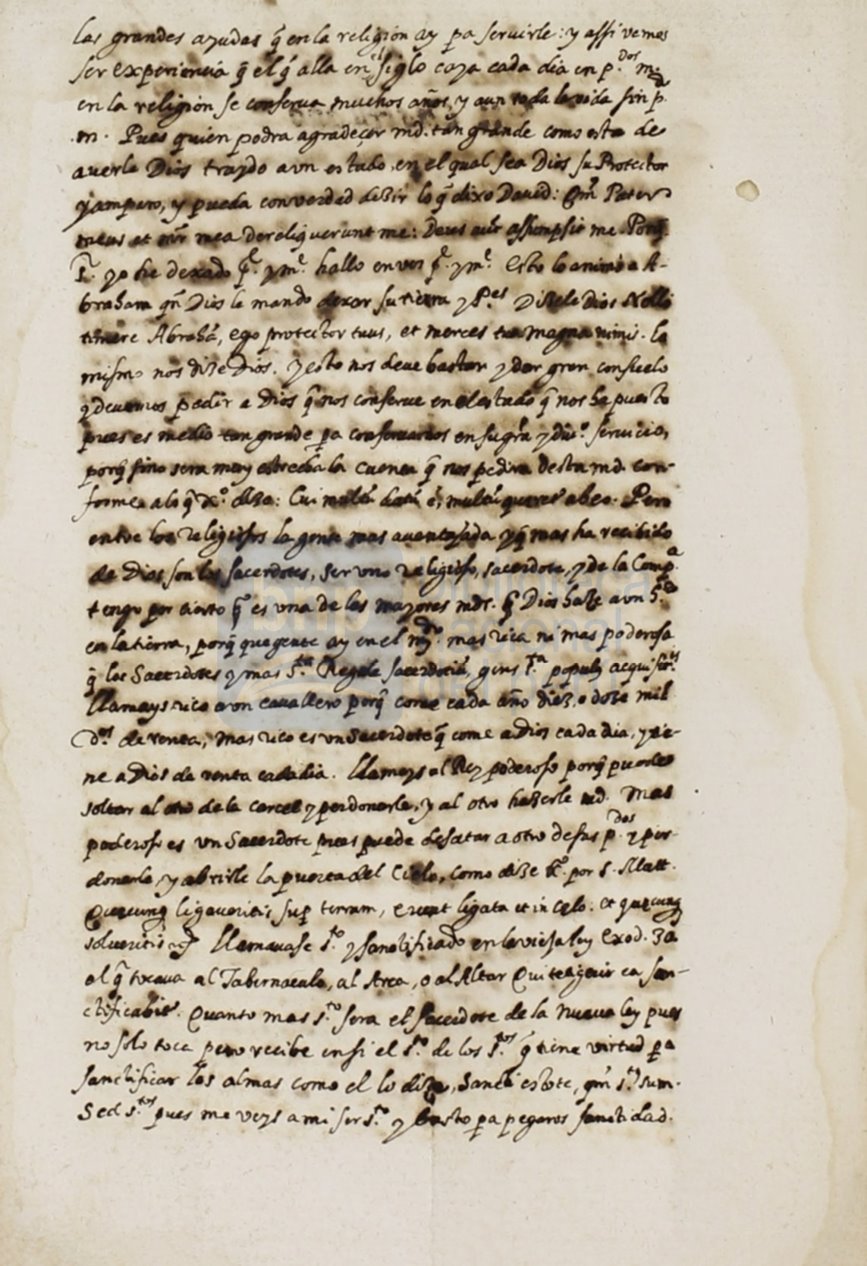 las grandes ayudas q̃ en la religion ay pa seruirle: y assi vemos
ser experiencia q̃ el q̃ alla en el siglo caya cada dia en p.dos m.
en la religion se conserua muchos años, y aun toda la vida sin p.
m. Pues quien podra agradeçer md. tan grande como esta de
auerle Dios traydo a vn estado, en el qual sea Dios su Protector
y amparo, y pueda con verdad dezir lo q̃ dixo Dauid: Qm̃ Pater
meus et mr̃ mea dereliquerunt me: Deus aũt assumpsit me. Porq̃
si yo he dexado p.e y m.e hallo en vos p.e y m.e Esto lo animó a A-
braham qñ Dios le mando dexar su tierra y P.es Dizele Dios Noli
timere Abrahã, ego protector tuus, et merces tua magna nimis. lo
mismo nos dize Dios. y esto nos deue bastar y dar gran consuelo
y deuemos pedir a Dios q̃ nos conserue en el estado q̃ nos ha puesto
pues es medio tan grande pa conseruarnos en su gr̃a y diu.o seruicio,
porq̃ sino sera muy estrecha la cuenta q̃ nos pedira desta md. con-
forme a lo q̃ X.o dize: Cui multũ datũ ẽ, multũ quæret ab eo. Pero
entre los Religiosos la gente mas auentajada y q̃ mas ha recibido
de Dios son los sacerdotes, ser vno religioso, sacerdote, y de la Comp.a
tengo por cierto q̃ es vna de las mayores mds. q̃ Dios haze a vn h.e
en la tierra, porq̃ que gente ay en el m.do mas rica ni mas poderosa
q̃ los Sacerdotes y mas s.ta Regale sacerdotiũ, gens s.ta populus acquisit.
Llamays rico a vn cauallero porq̃ come cada año diez, o doze mil
d.os de renta, mas rico es vn Sacerdote q̃ come a Dios cada dia, y tie-
ne a Dios de renta cada dia. Llamays al Rey poderoso porq̃ puede
soltar al otro de la carcel y perdonarle, y al otro hazerle md. Mas
poderoso es vn Sacerdote pues puede desatar a otro de sus p.dos y per-
donarle, y abrirle la puerta del Cielo, como dize X.o por S. Matt.
Quæcunq̃ ligaueritis sup̃ terram, erunt ligata et in cęlo. et quæcunq̃
solueritis &c. Llamauase s.to y sanctificado en la vieja ley Exod. 30
el q̃ tocaua al Tabernaculo, al Arca, o al Altar Qui tetigerit ea san-
ctificabit.r Quanto mas s.to sera el sacerdote de la nueua ley pues
no solo toca pero recibe en si el s.to de los s.tos q̃ tiene virtud pa
sanctificar las almas como el lo dize, Sancti estote, qm̃ s.tus sum.
Sed s.tos pues me veys a mi ser s.to y basto pa pegaros sanctidad.